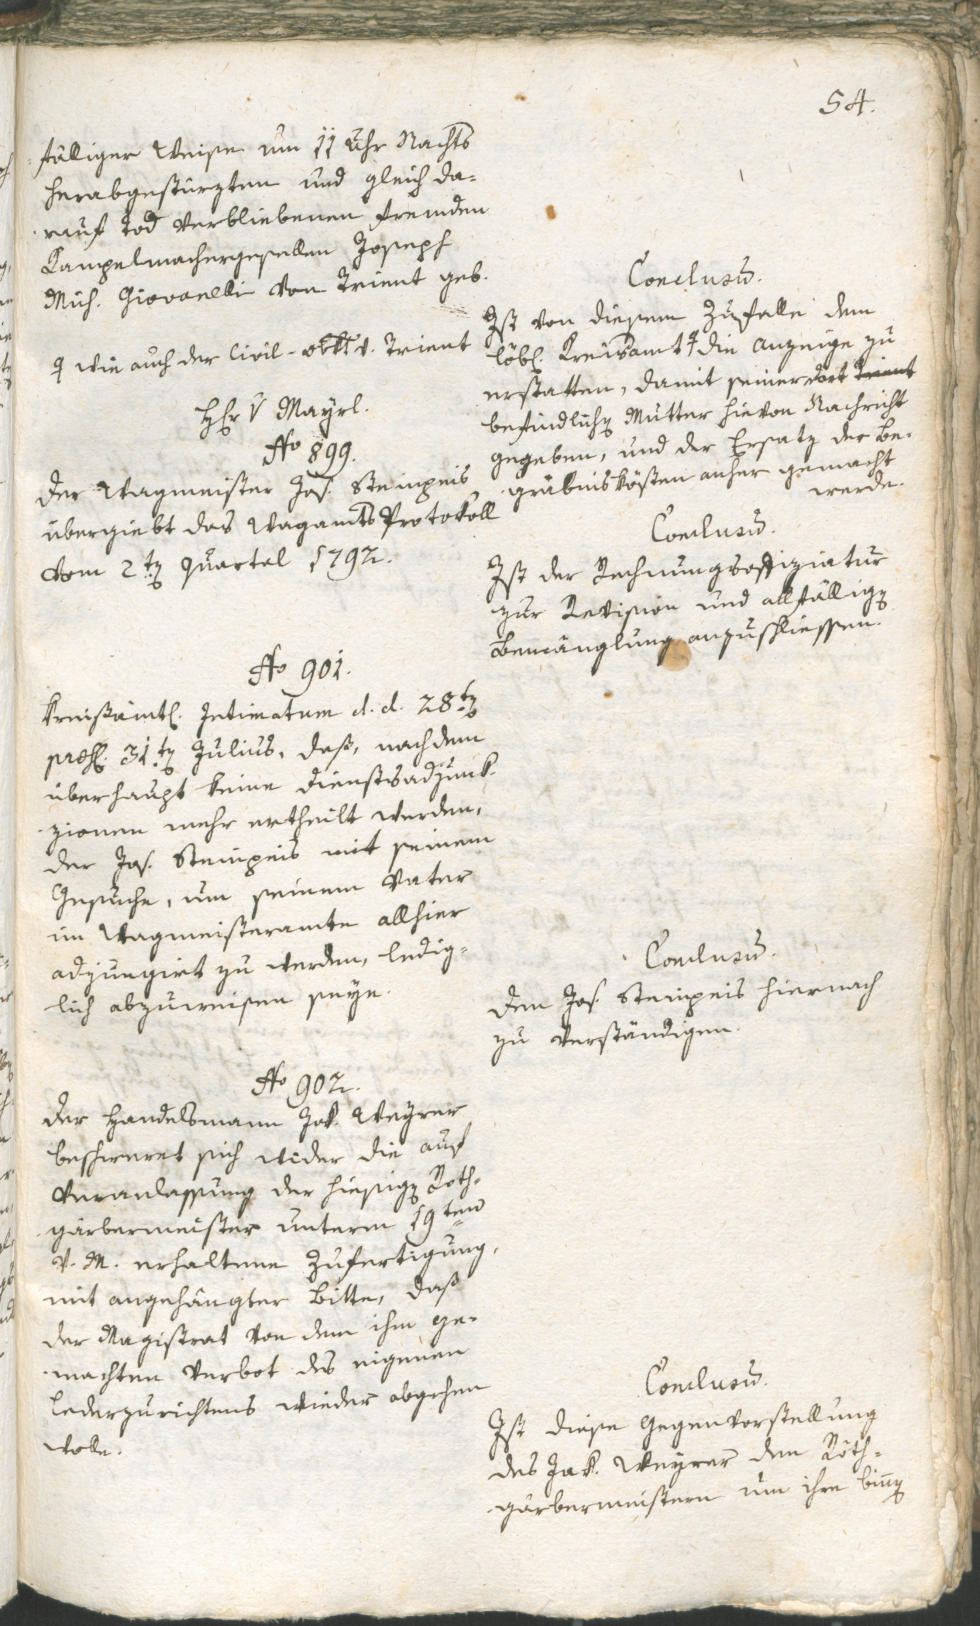 54.
fälliger Weise um 11 Uhr Nachts
herabgestürzten und gleich da-
rauf tod verbliebenen fremden
Kampelmachergesellen Joseph
Mich. Giovanelli von Trient geb.
wie auch der Civil- v. Trient
Hr v Mayrl.
No 899.
Der Wagmeister Jos. Steinpeis
übergiebt das Wagamts Protokoll
vom 2ten Quartal 1792.
No 901.
Kreisämtl. Intimatum d. d. 28ten
praes. 31ten Julius, daß, nachdem
überhaupt keine Dienstsadjunk-
zionen mehr ertheilt werden,
der Jos. Steinpeis mit seinem
Gesuche, um seinem Vater
im Wagmeisteramte allhier
adjungirt zu werden, ledig-
lich abzuweisen seye.
No 902.
Der Handelsmann Jak. Weyrer
beschweret sich wider die auf
Veranlassung der hiesigen Roth-
gärbermeister unterm 19ten
v. M. erhaltene Zufertigung,
mit angehängter Bitte, daß
der Magistrat von dem ihm ge-
machten Verbot des eigenen
Lederzurichtens wieder abgehen
wolle.
Conclusum.
Ist von diesem Zufalle dem
löbl. Kreisamt die Anzeige zu
erstatten, damit seiner dort Trient
befindlichen Mutter hievon Nachricht
gegeben, und der Ersatz der Be-
gräbniskösten anher gemacht
werde.
Conclusum.
Ist der Rechnungsoffiziatur
zur Revision und allfälligen
Bemänglung anzuschliessen.
Conclusum.
Dem Jos. Steinpeis hiernach
zu verständigen.
Conclusum.
Ist diese Gegenvorstellung
des Jak. Weyrer den Roth-
gärbermeistern um ihre binnen